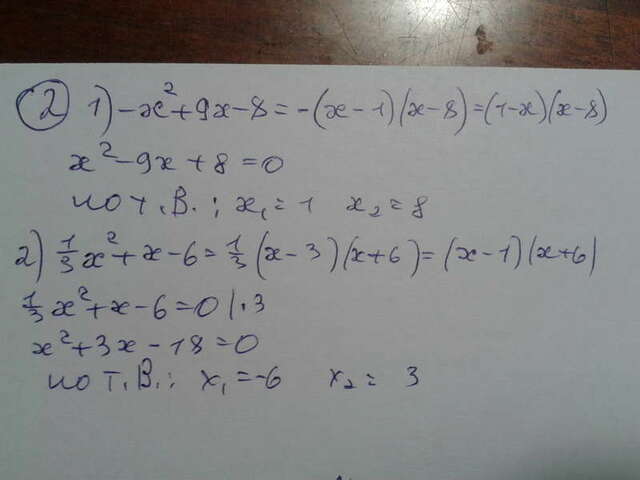 ② 1) -x²+9x-8=-(x-1)(x-8)=(1-x)(x-8)
x²-9x+8=0
по т.В.: x₁=1 x₂=8
2) 1/3x²+x-6=1/3(x-3)(x+6)=(x-1)(x+6)
1/3x²+x-6=0|·3
x²+3x-18=0
по т.В.: x₁=-6 x₂= 3